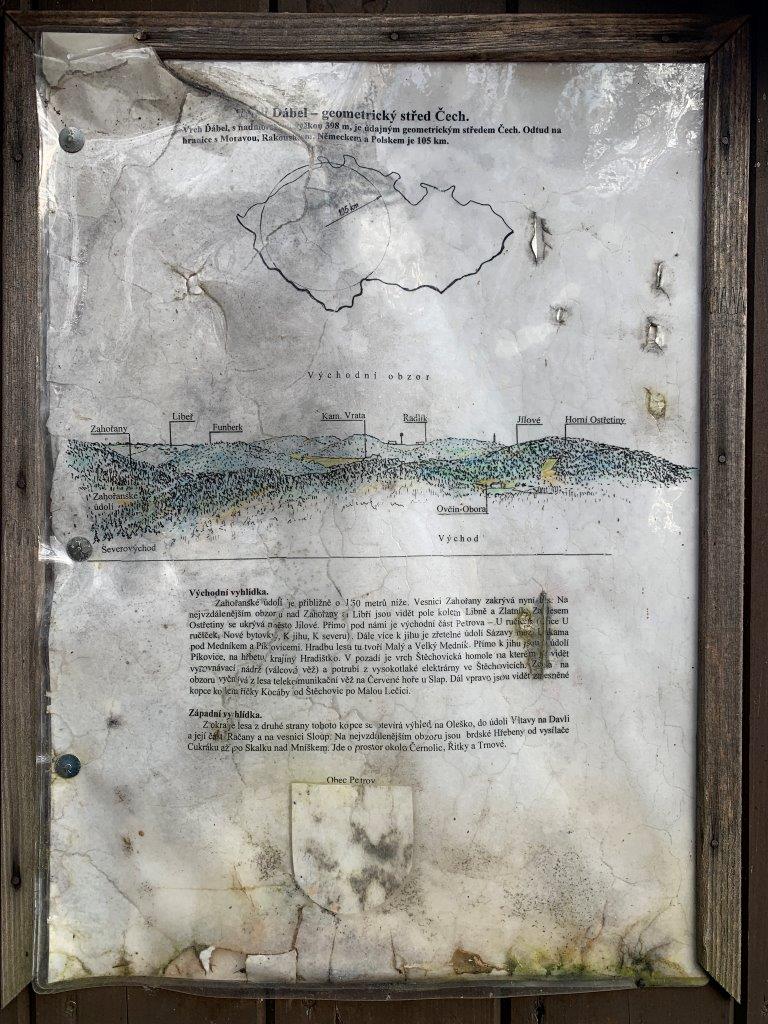 Ďábel – geometrický střed Čech.
Vrch Ďábel, s výškou 398 m, je údajným geometrickým středem Čech. Odtud na
hranice s Moravou, Německem a Polskem je 105 km.
105 km
Východní obzor
Zahořany
Libeř
Funberk
Kam. Vrata
Radlík
Jílové
Horní Ostřetiny
Zahořanské
údolí
Ovčín-Obora
Severovýchod
Východ
Východní vyhlídka.
Zahořanské údolí je přibližně o 150 metrů níže. Vesnici Zahořany zakrývá nyní les. Na
nejvzdálenějším obzoru nad Zahořany a Libří jsou vidět pole kolem Libně a Zlatník. Za lesem
Ostřetiny se ukrývá město Jílové. Přímo pod námi je východní část Petrova – U
ručiček, Nové bytovky, K jihu, K severu). Dále více k jihu je zřetelné údolí Sázavy
pod Medníkem a Pikovicemi. Hradbu lesů tu tvoří Malý a Velký Medník. Přímo k jihu jsou údolí
Pikovice, na hřbetu krajiny Hradištko. V pozadí je vrch Štěchovická homole na kterém je vidět
vyrovnávací nádrž (válcová věž) a potrubí z vysokotlaké elektrárny ve Štěchovicích. na
obzoru vyčnívá z lesa telekomunikační věž na Červené hoře u Slap. Dál vpravo jsou vidět zalesněné
kopce kolem říčky Kocáby od Štěchovic po Malou Lečici.
Západní vyhlídka.
Z okraje lesa z druhé strany tohoto kopce se otevírá výhled na Oleško, do údolí Vltavy na Davli
a její část Račany a na vesnici Sloup. Na nejvzdálenějším obzoru jsou brdské Hřebeny od vysílače
Cukráku až po Skalku nad Mníškem. Jde o prostor okolo Černolic, Řitky a Trnové.
Obec Petrov